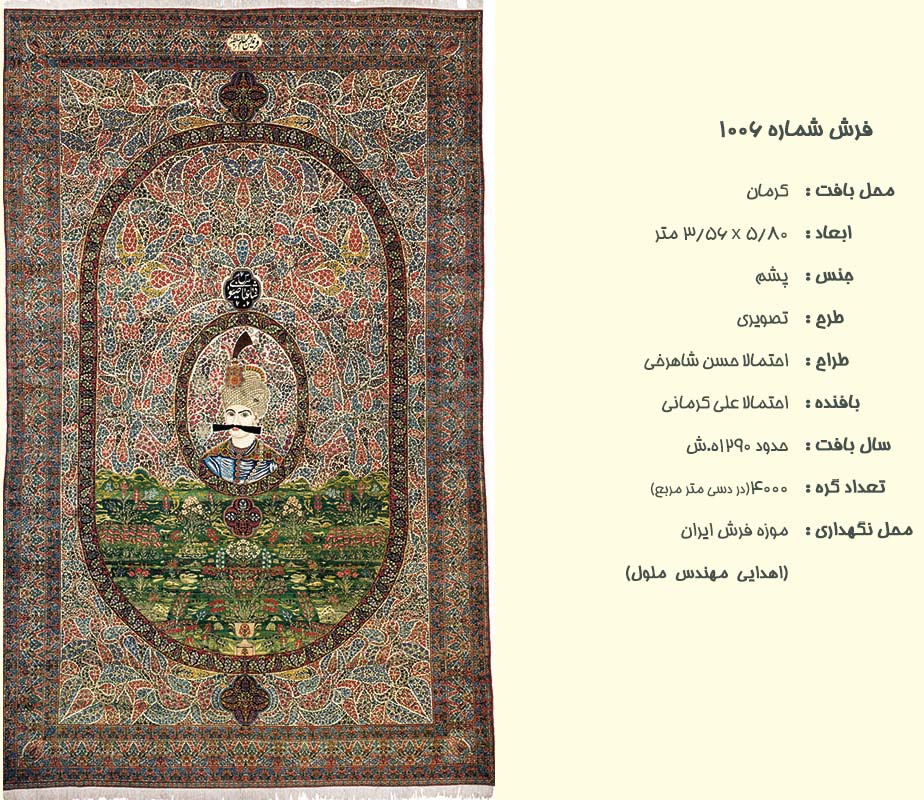 فرش شماره ۱۰۰۶
محل بافت : کرمان
ابعاد : ۵/۸۰ x ۳/۵۶ متر
جنس : پشم
طرح : تصویری
طراح : احتمالا حسن شاهرخی
بافنده : احتمالا علی کرمانی
سال بافت : حدود ۱۲۹۰ه.ش
تعداد گره : ۴۰۰۰(در دسی متر مربع)
محل نگهداری : موزه فرش ایران
(اهدایی مهندس ملول)